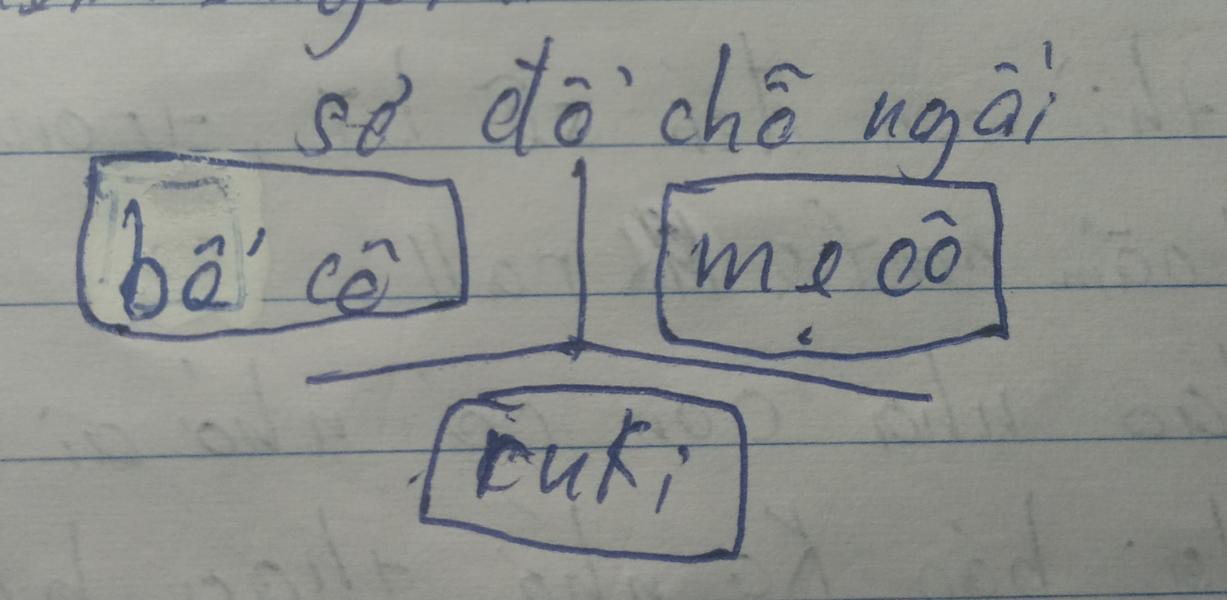 sơ đồ chỗ ngồi
bố cô mẹ cô
cuki